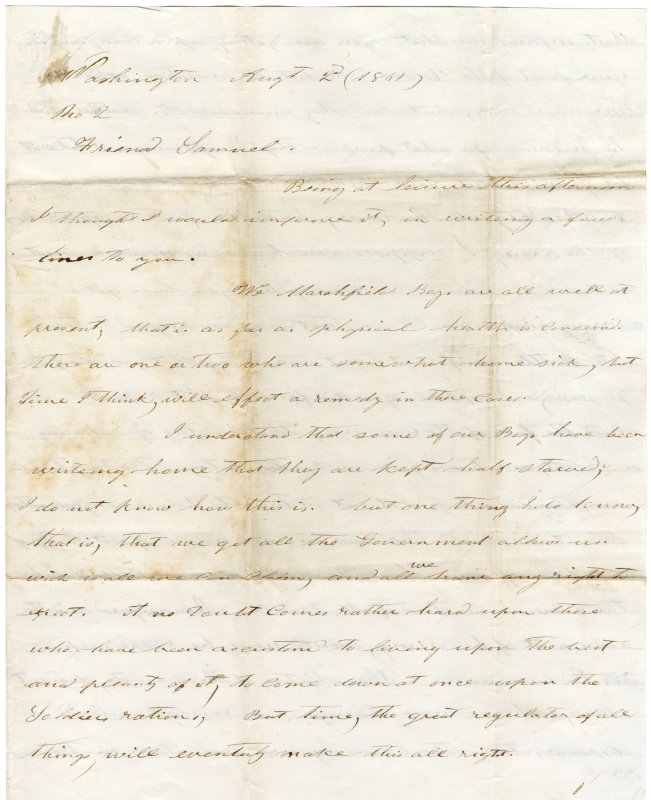 Washington Augt 2d (1861)
No 2
Friend Samuel.
Being at leisure this afternoon
I thought I would improve it, in writing a few
lines to you.
We Marshfield Boys are all well at
present, that is as far as physical health is concerd.
there are one or two who are somewhat home sick, but
time I think, will effect a remdy in those cases.
I understand that some of our Boys have been
writeing home that they are kept half starved;
I do not know how this is. but one thing I do know,
that is, that we get all the Government allows us
wich is all we can claim, and all we have any right to
exect. it no doubt comes rather hard upon those
who have been accustom to living upon the best
and pleanty of it, to come down at once upon the
Soldiers rations, But time, the great regulator of all
things, will eventuly make this all right.